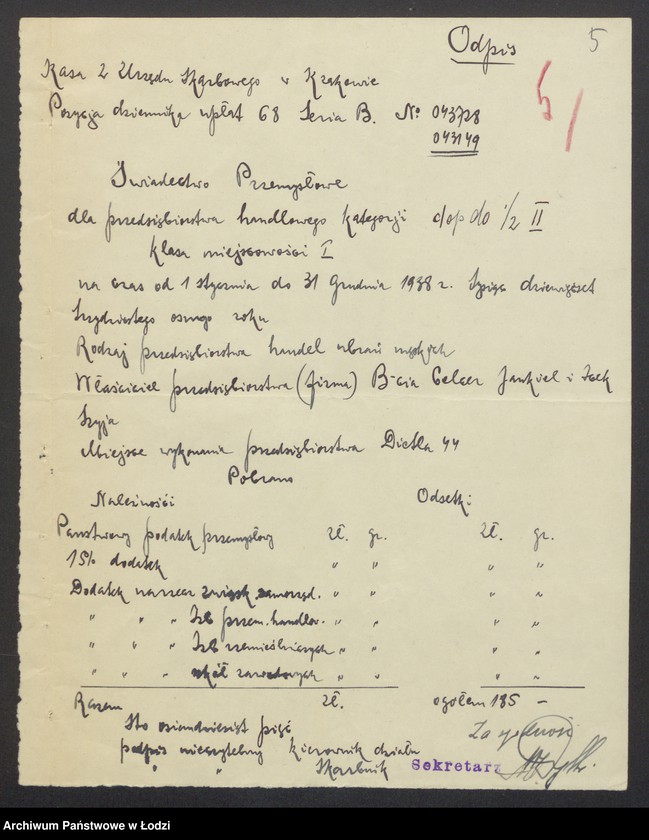 Odpis 5
Kasa 2 Urzędu Skarbowego w Krakowie
5/
Pozycja dziennika wpłat 68 Seria B. No 043728
043149
Świadectwo Przemysłowe
dla przedsiębiorstwa handlowego kategorji dop do 1/2 II
Klasa miejscowości I
na czas od 1 stycznia do 31 Grudnia 1938 r. tysiąc dziewięćset
trzydziestego osmego roku
Rodzaj przedsiębiorstwa handel ubrań męskich
Właściciel przedsiębiorstwa (firma) B-cia Celcer Jankiel i Icek
Szyja
Miejsce wykonania przedsiębiorstwa Dietla 44
Pobrano
Należności Odsetki
Państwowy podatek przemysłowy zł. gr. zł. gr.
15% dodatek " " " "
Dodatek na rzecz związk. samorząd. " " " "
" " " Izb przem. handlow. " " " "
" " " Izb rzemieślniczych " " " "
" " " szkół zawodowych " " " "
Razem zł. ogółem 185 –
Sto osiemdziesiąt pięć Za zgodność
podpis nieczytelny Kierownik działu
" " Skarbnik Sekretarz
Archiwum Państwowe w Łodzi